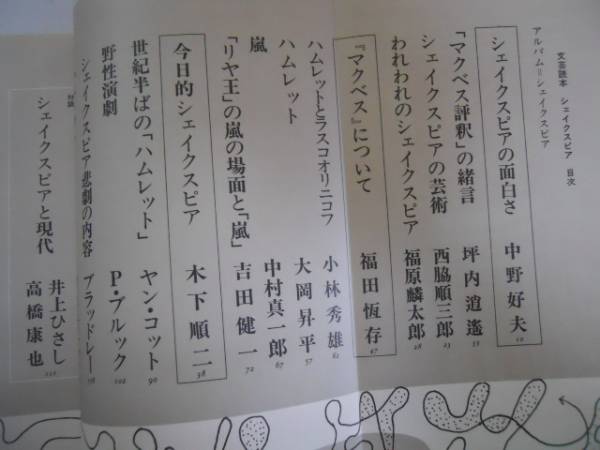 文芸読本 シェイクスピア 目次
アルバム=シェイクスピア
シェイクスピアの面白さ 中野好夫 10
「マクベス評釈」の緒言 坪内逍遙
シェイクスピアの芸術 西脇順三郎 23
われわれのシェイクスピア 福原麟太郎 28
『マクベス』について 福田恆存 47
ハムレットとラスコオリニコフ 小林秀雄 61
ハムレット 大岡昇平 57
嵐 中村真一郎 67
「リヤ王」の嵐の場面と「嵐」 吉田健一 72
今日的シェイクスピア 木下順二 38
世紀半ばの「ハムレット」 ヤン・コット 90
野性演劇 P・ブルック 102
シェイクスピア悲劇の内容 ブラッドレー
対談
シェイクスピアと現代 井上ひさし
高橋康也